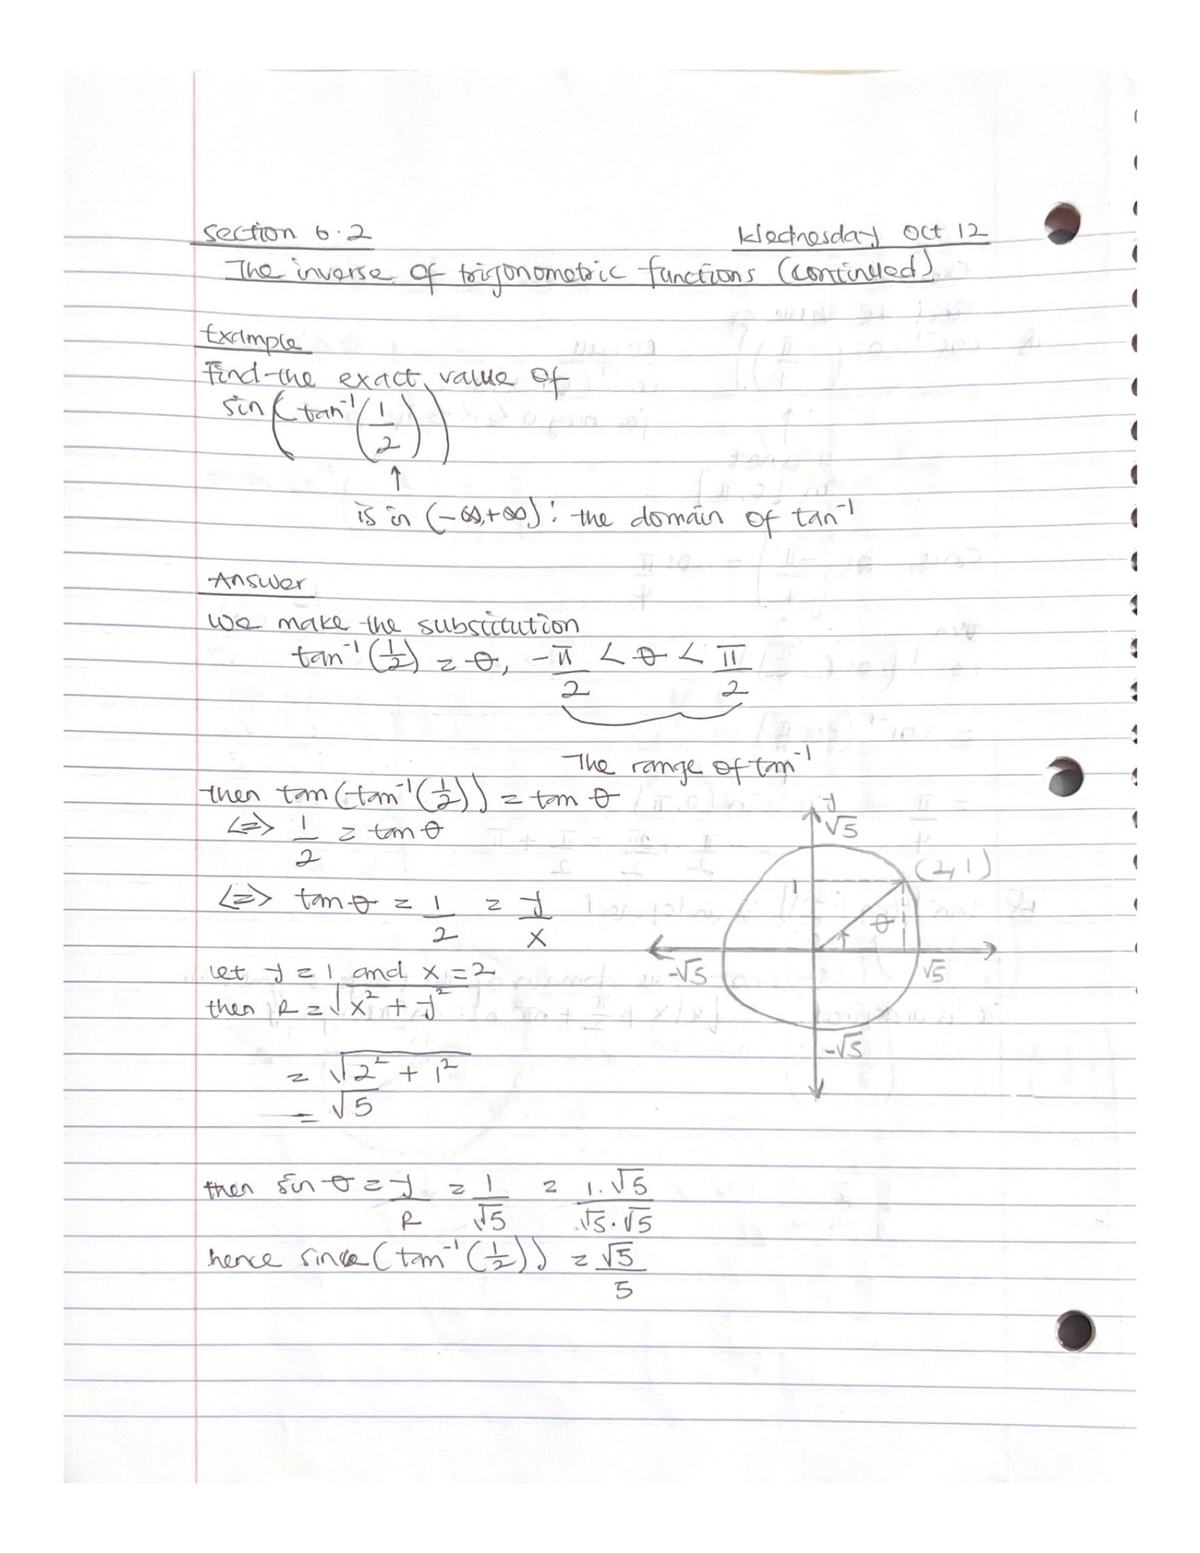 Section 6.2 Wednesday Oct 12
The inverse of trigonometric functions (continued)
Example
Find the exact value of
sin(tan⁻¹(1/2))
↑
is in (-∞,+∞): the domain of tan⁻¹
Answer
we make the substitution
tan⁻¹(1/2) = θ, -π/2 < θ < π/2
The range of tan⁻¹
then tan(tan⁻¹(1/2)) = tan θ
<=> 1/2 = tan θ
<=> tan θ = 1/2 = y/x
Let y = 1 and x = 2
then R = √(x² + y²)
= √(2² + 1²)
= √5
y
√5
(2,1)
1
θ
-√5
√5
-√5
then sin θ = y/R = 1/√5 = 1.√5/√5.√5
hence since (tan⁻¹(1/2)) = √5/5